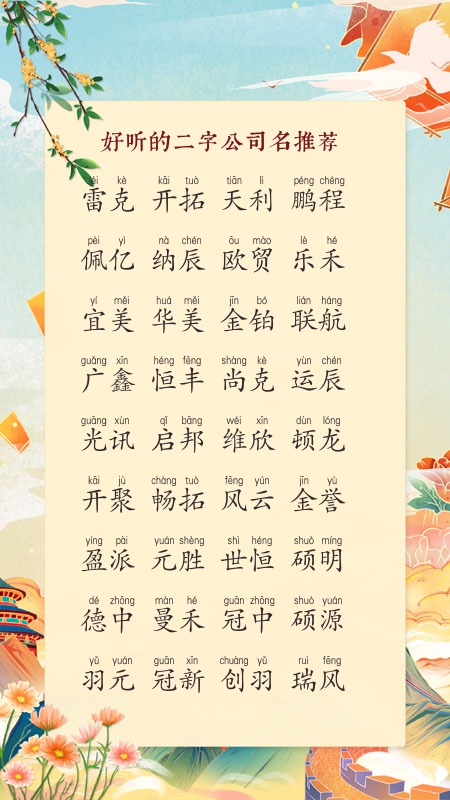 好听的二字公司名推荐
léi kè kāi tuò tiān lì péng chéng
雷克 开拓 天利 鹏程
pèi yì nà chén ōu mào lè hé
佩亿 纳辰 欧贸 乐禾
yí měi huá měi jīn bó lián háng
宜美 华美 金铂 联航
guǎng xīn héng fēng shàng kè yùn chén
广鑫 恒丰 尚克 运辰
guāng xùn qǐ bāng wéi xīn dùn lóng
光讯 启邦 维欣 顿龙
kāi jù chàng tuò fēng yún jīn yù
开聚 畅拓 风云 金誉
yíng pài yuán shèng shì héng shuò míng
盈派 元胜 世恒 硕明
dé zhōng màn hé guān zhōng shuò yuán
德中 曼禾 冠中 硕源
yǔ yuán guān xīn chuàng yǔ ruì fēng
羽元 冠新 创羽 瑞风